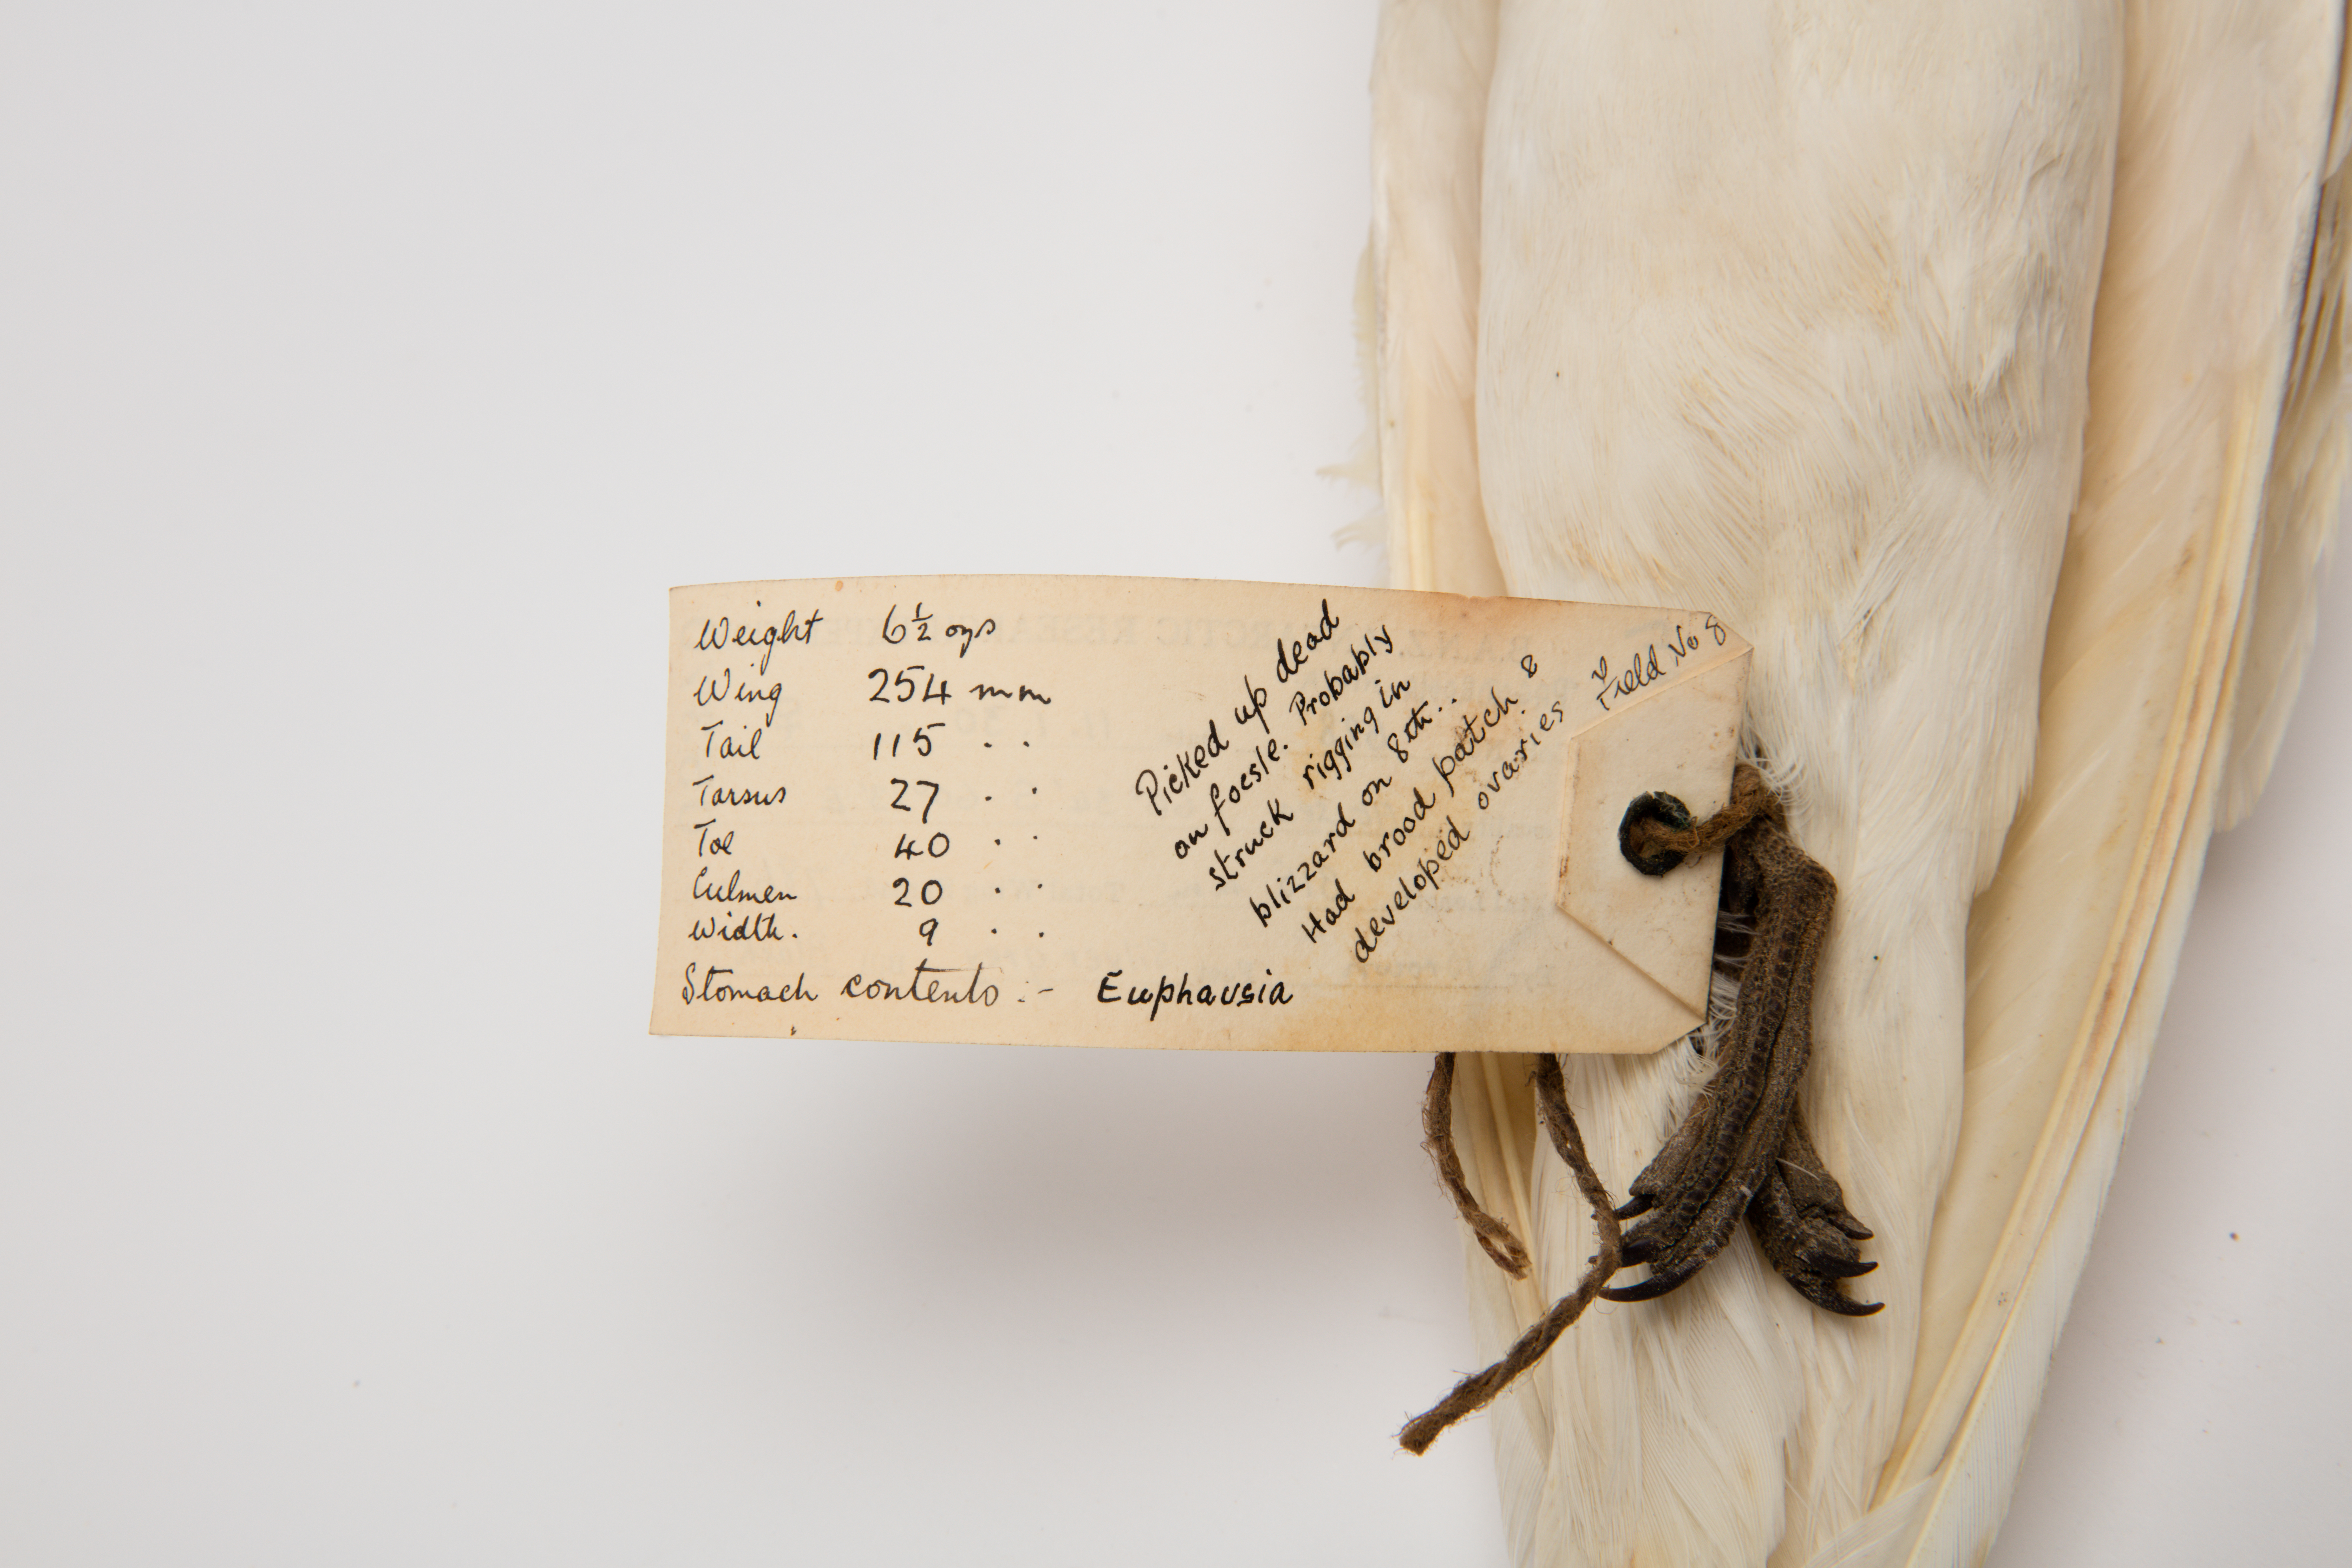 Weight 6½ ozs
Wing 254 mm
Tail 115 . .
Tarsus 27 . .
Toe 40 . .
Culmen 20 . .
Width. 9 . .
Stomach contents :- Euphausia
Picked up dead
on focsle. Probably
struck rigging in
blizzard on 8th..
Had brood patch &
developed ovaries
Field No 8